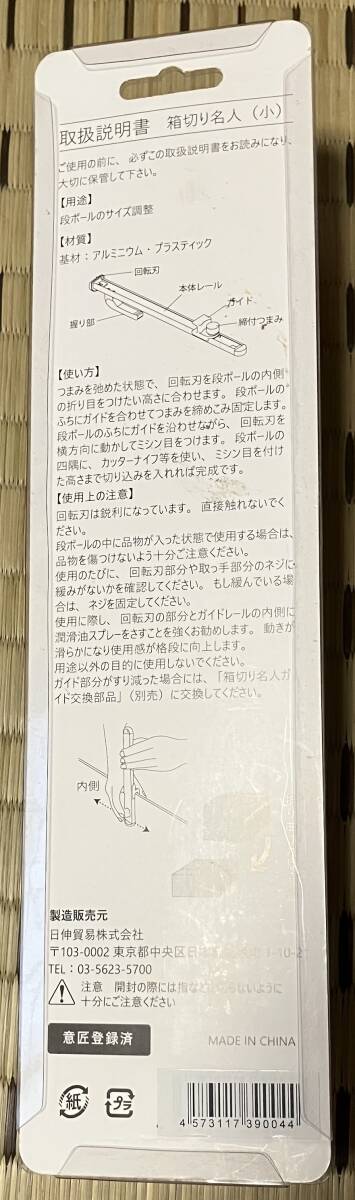 取扱説明書 箱切り名人（小）
ご使用の前に、必ずこの取扱説明書をお読みになり、
大切に保管して下さい。
【用途】
段ボールのサイズ調整
【材質】
基材：アルミニウム・プラスティック
回転刃
本体レール
ガイド
握り部
締付つまみ
【使い方】
つまみを弛めた状態で、回転刃を段ボールの内側
の折り目をつけたい高さに合わせます。段ボールの
ふちにガイドを合わせてつまみを締めこみ固定します。
段ボールのふちにガイドを沿わせながら、回転刃を
横方向に動かしてミシン目をつけます。段ボールの
四隅に、カッターナイフ等を使い、ミシン目を付け
た高さまで切り込みを入れれば完成です。
【使用上の注意】
回転刃は鋭利になっています。直接触れないでく
ださい。
段ボールの中に品物が入った状態で使用する場合は、
品物を傷つけないよう十分ご注意ください。
使用のたびに、回転刃部分や取っ手部分のネジに
緩みがないかを確認してください。もし緩んでいる場
合は、ネジを固定してください。
使用に際し、回転刃の部分とガイドレールの内側に
潤滑油スプレーをさすことを強くお勧めします。動きが
滑らかになり使用感が格段に向上します。
用途以外の目的に使用しないでください。
ガイド部分がすり減った場合には、「箱切り名人ガ
イド交換部品」（別売）に交換してください。
内側
製造販売元
日伸貿易株式会社
〒103-0002 東京都中央区日本橋 1-10-2
TEL：03-5623-5700
注意 開封の際には指など ように
十分にご注意ください
意匠登録済
MADE IN CHINA
紙
プラ
4 573117 390044